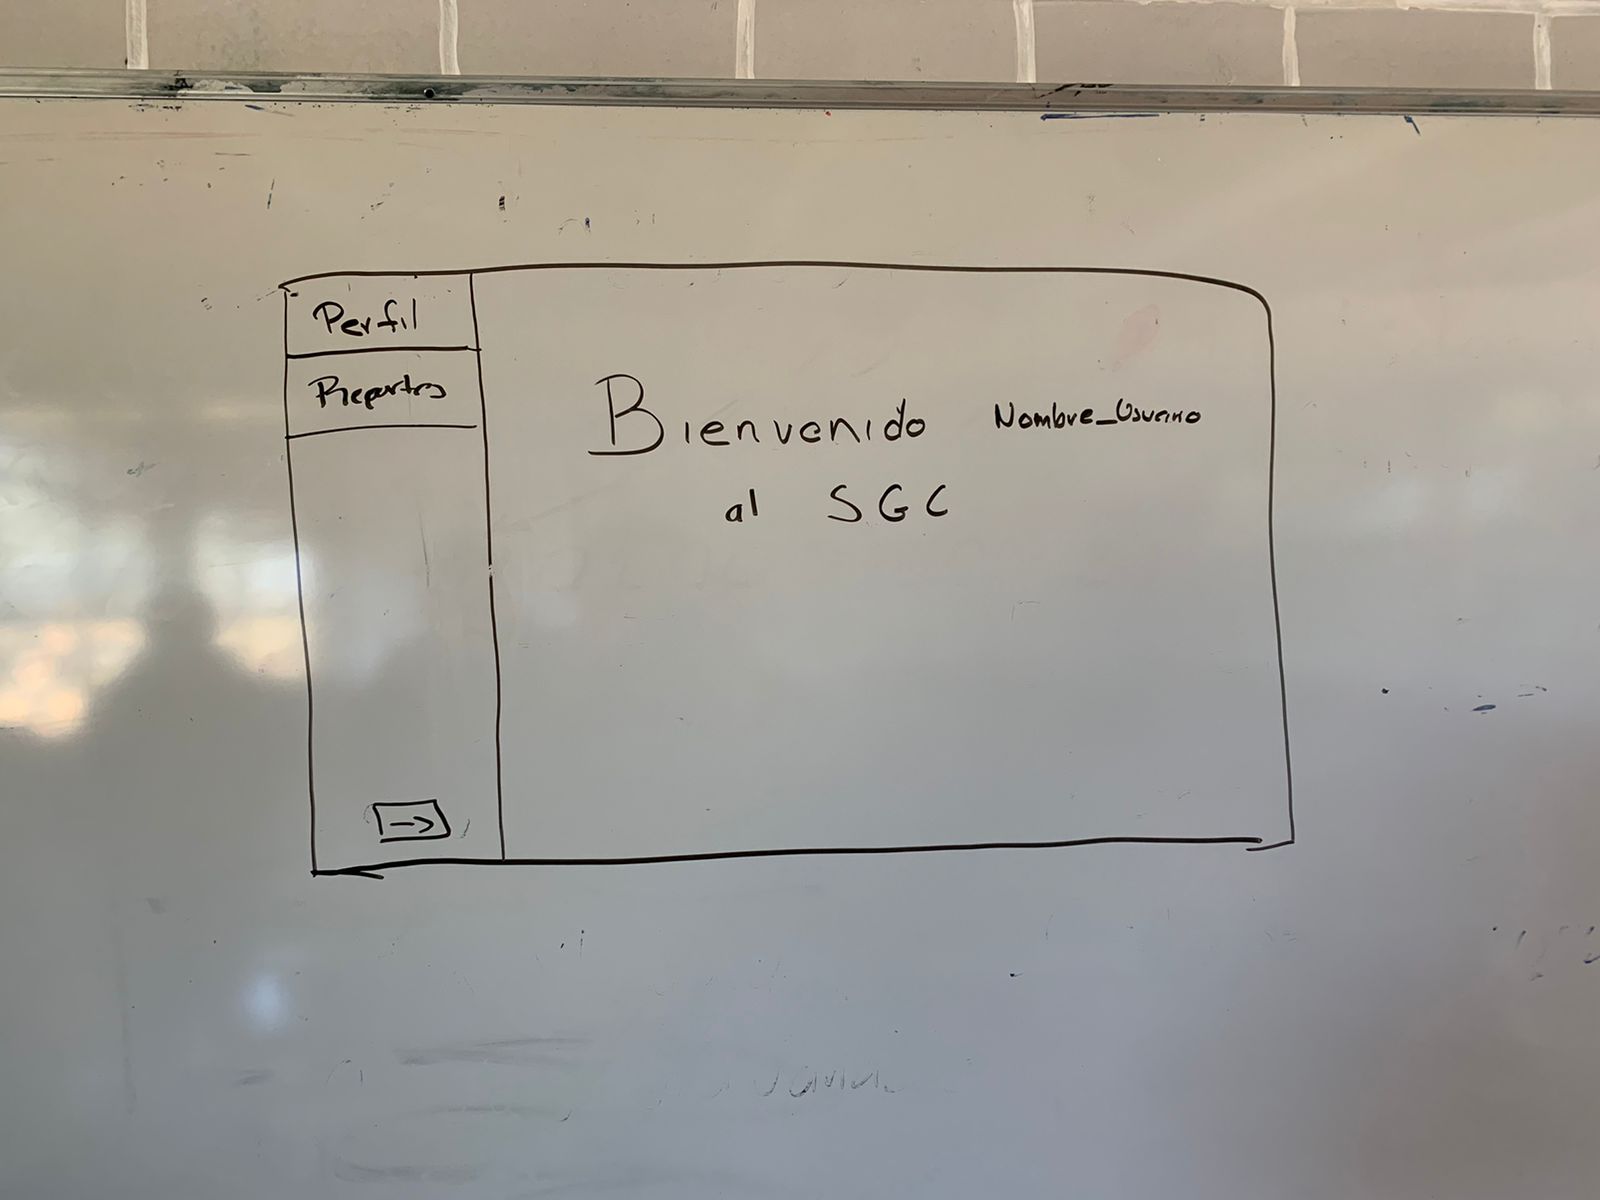 Perfil
Reportes
Bienvenido Nombre_Usuario
al SGC